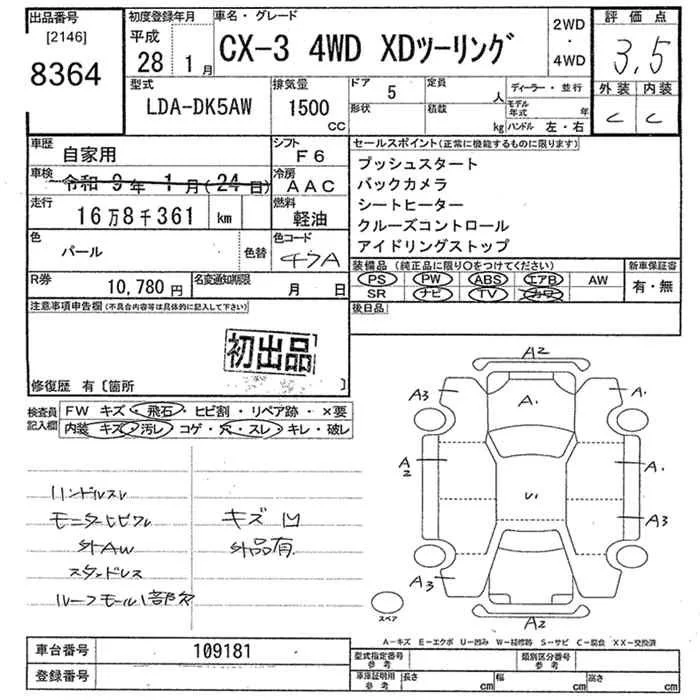 出品番号
[2146]
8364
初度登録年月
平成
28年 1月
車名・グレード
CX-3 4WD XDツーリング
2WD
・
4WD
評価点
3.5
外装 内装
C C
型式
LDA-DK5AW
排気量
1500
CC
ドア 5
形状
定員 人
積載 kg
ディーラー・並行
モデル年式 年
ハンドル 左・右
車歴 自家用
シフト F6
車検 令和 9年 1月(24日)
冷房 AAC
走行 16万8千361 km
燃料 軽油
色 パール 色替
色コード 47A
R券 10,780円
名変通知期限 月 日
セールスポイント(正常に機能するものに限ります)
プッシュスタート
バックカメラ
シートヒーター
クルーズコントロール
アイドリングストップ
装備品(純正品に限り○をつけてください)
PS PW ABS エアB AW
SR ナビ TV カワ
新車保証書
有・無
後日品
注意事項申告欄(不具合内容等は具体的に記入して下さい)
初出品
修復歴 有〔箇所 〕
検査員記入欄
FW キズ・飛石・ヒビ割・リペア跡・×要
内装 キズ・汚レ コゲ・穴・スレ・キレ・破レ
ハンドルスレ
モニターヒビワレ
外AW
スタッドレス
キズ凹
外品有
A2
A3 A1 A1
A2 A1
U1
A3
A3
A2
スペア
A-キズ E-エクボ U-凹み W-補修跡 S-サビ C-腐食 XX-交換済
車台番号 109181
登録番号
型式指定番号 参考
類別区分番号 参考
車庫証明用 参考
長さ cm
幅 cm
高さ cm